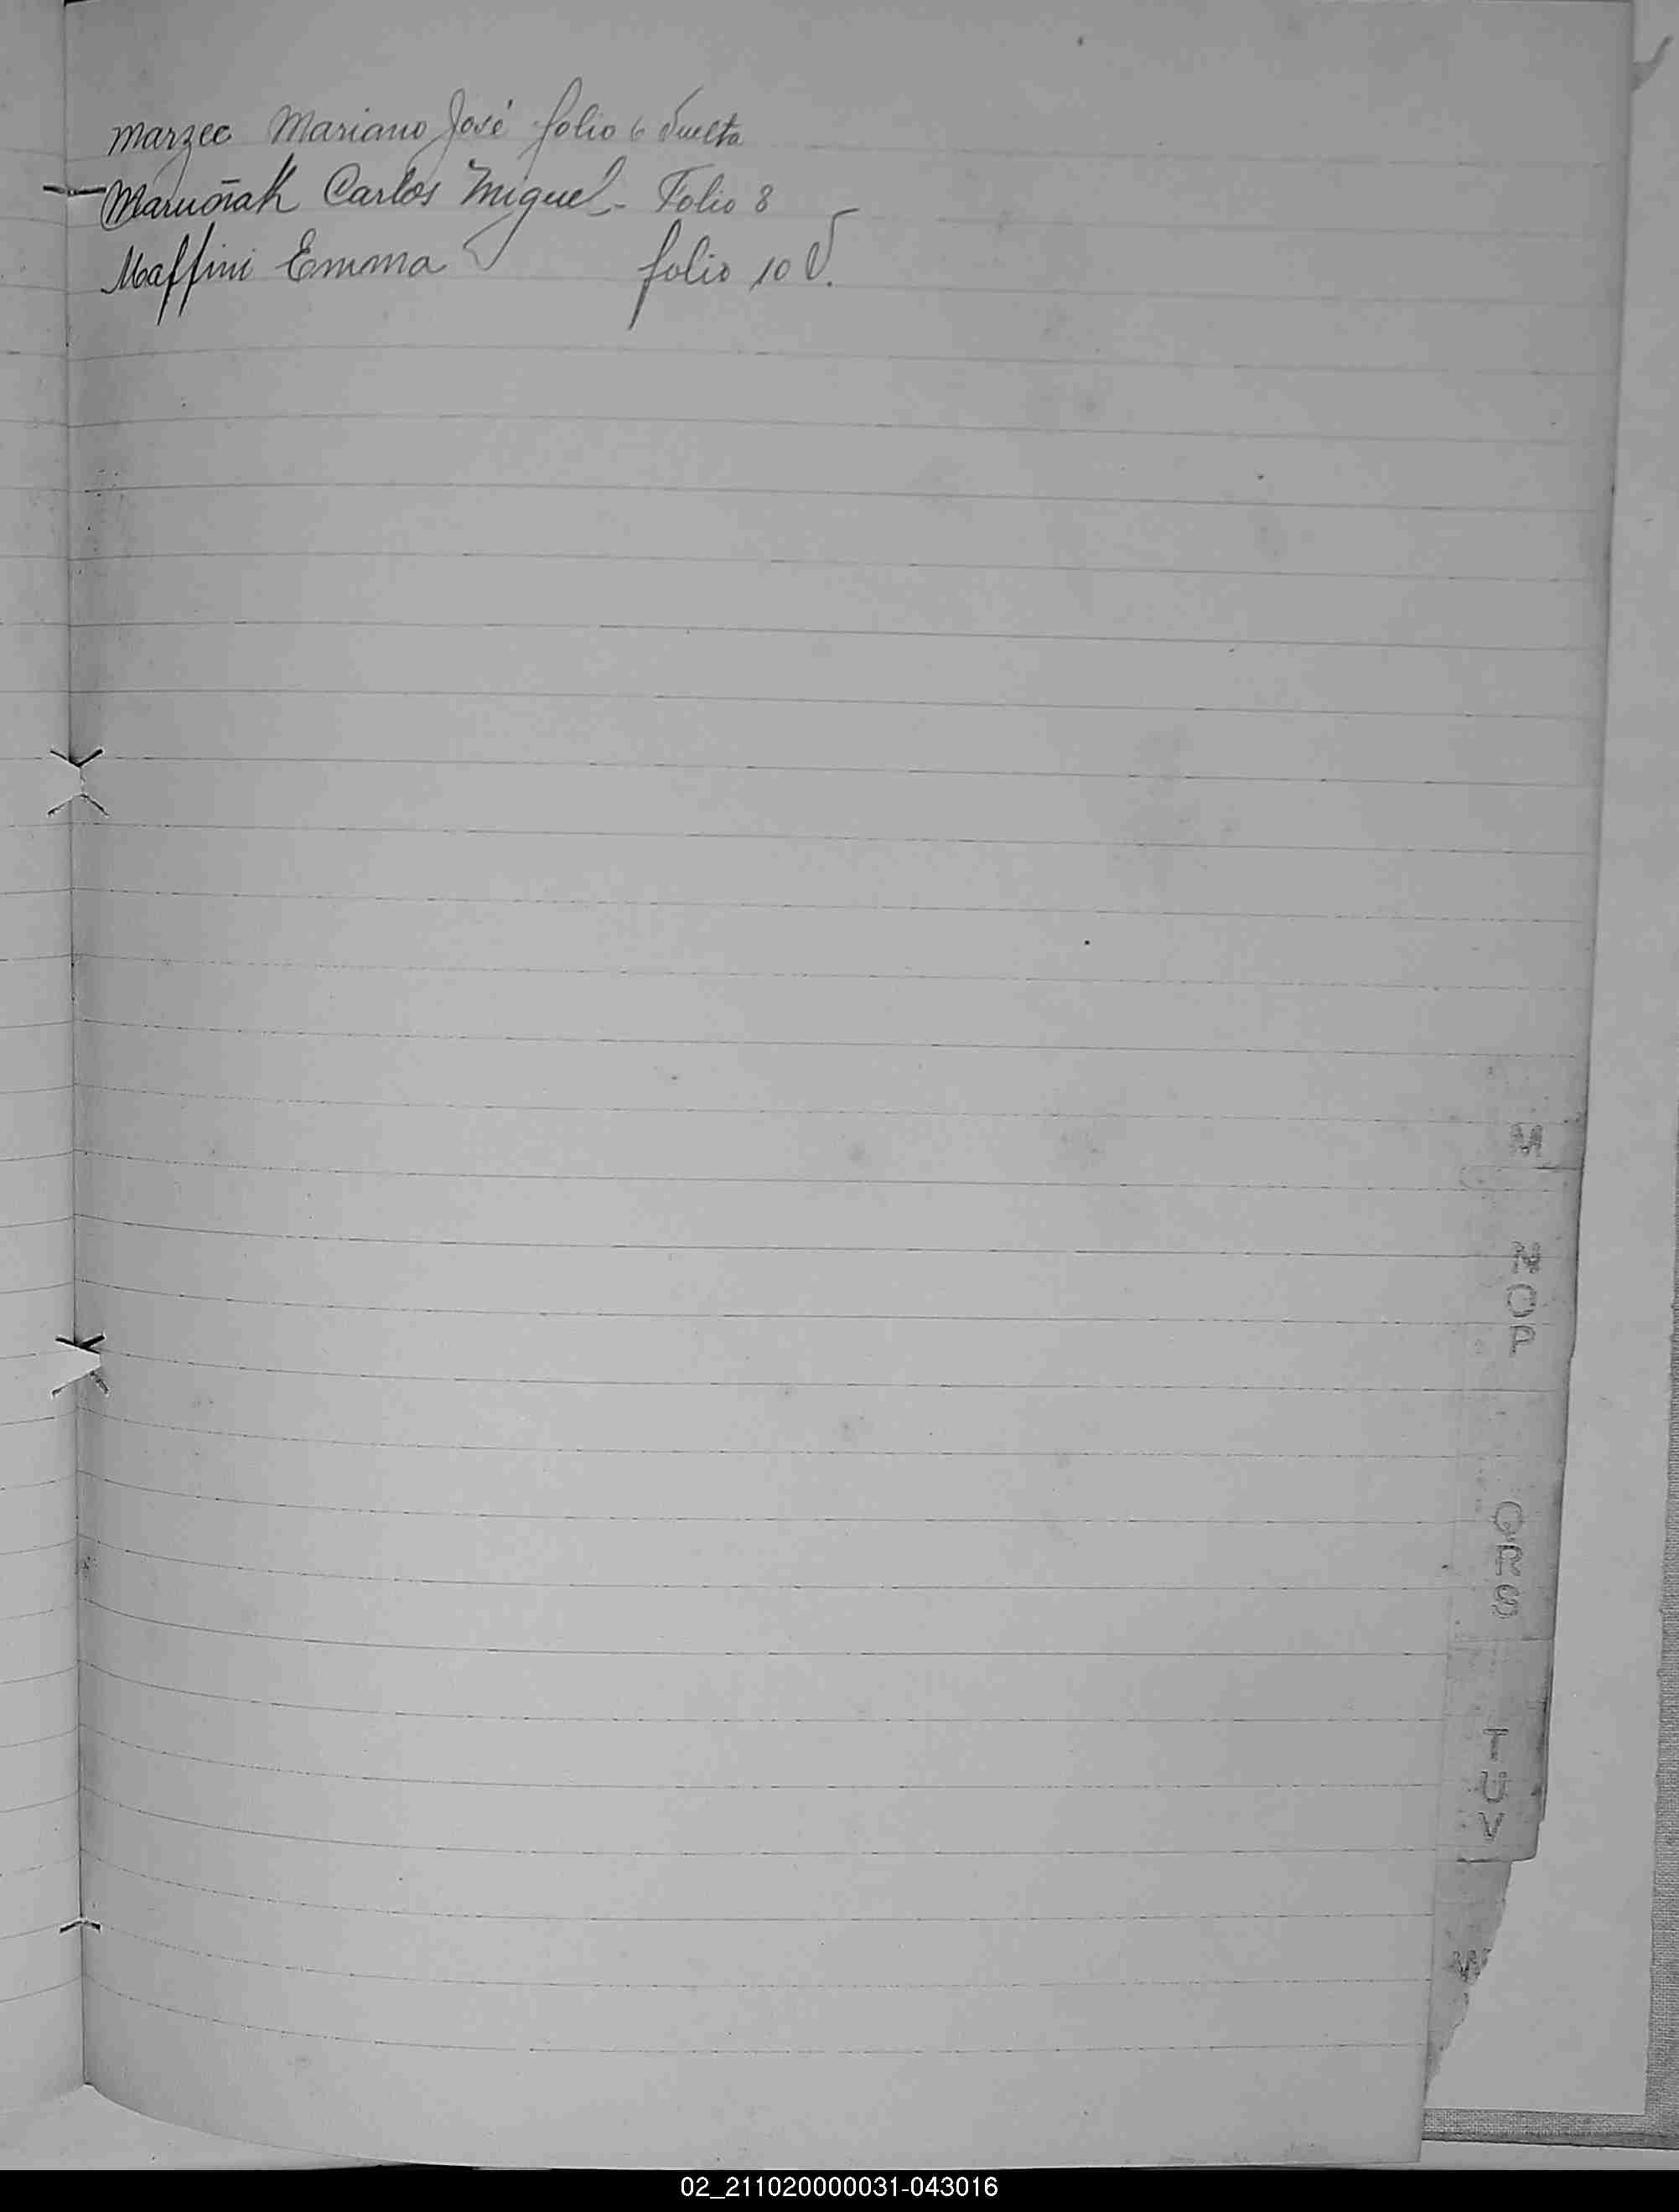 Marzec Mariano José folio 6 Vuelta
Maruñak Carlos Miguel - Folio 8
Maffini Emma folio 10 V.
M
N
O
P
Q
R
S
T
U
V
W
02_211020000031-043016